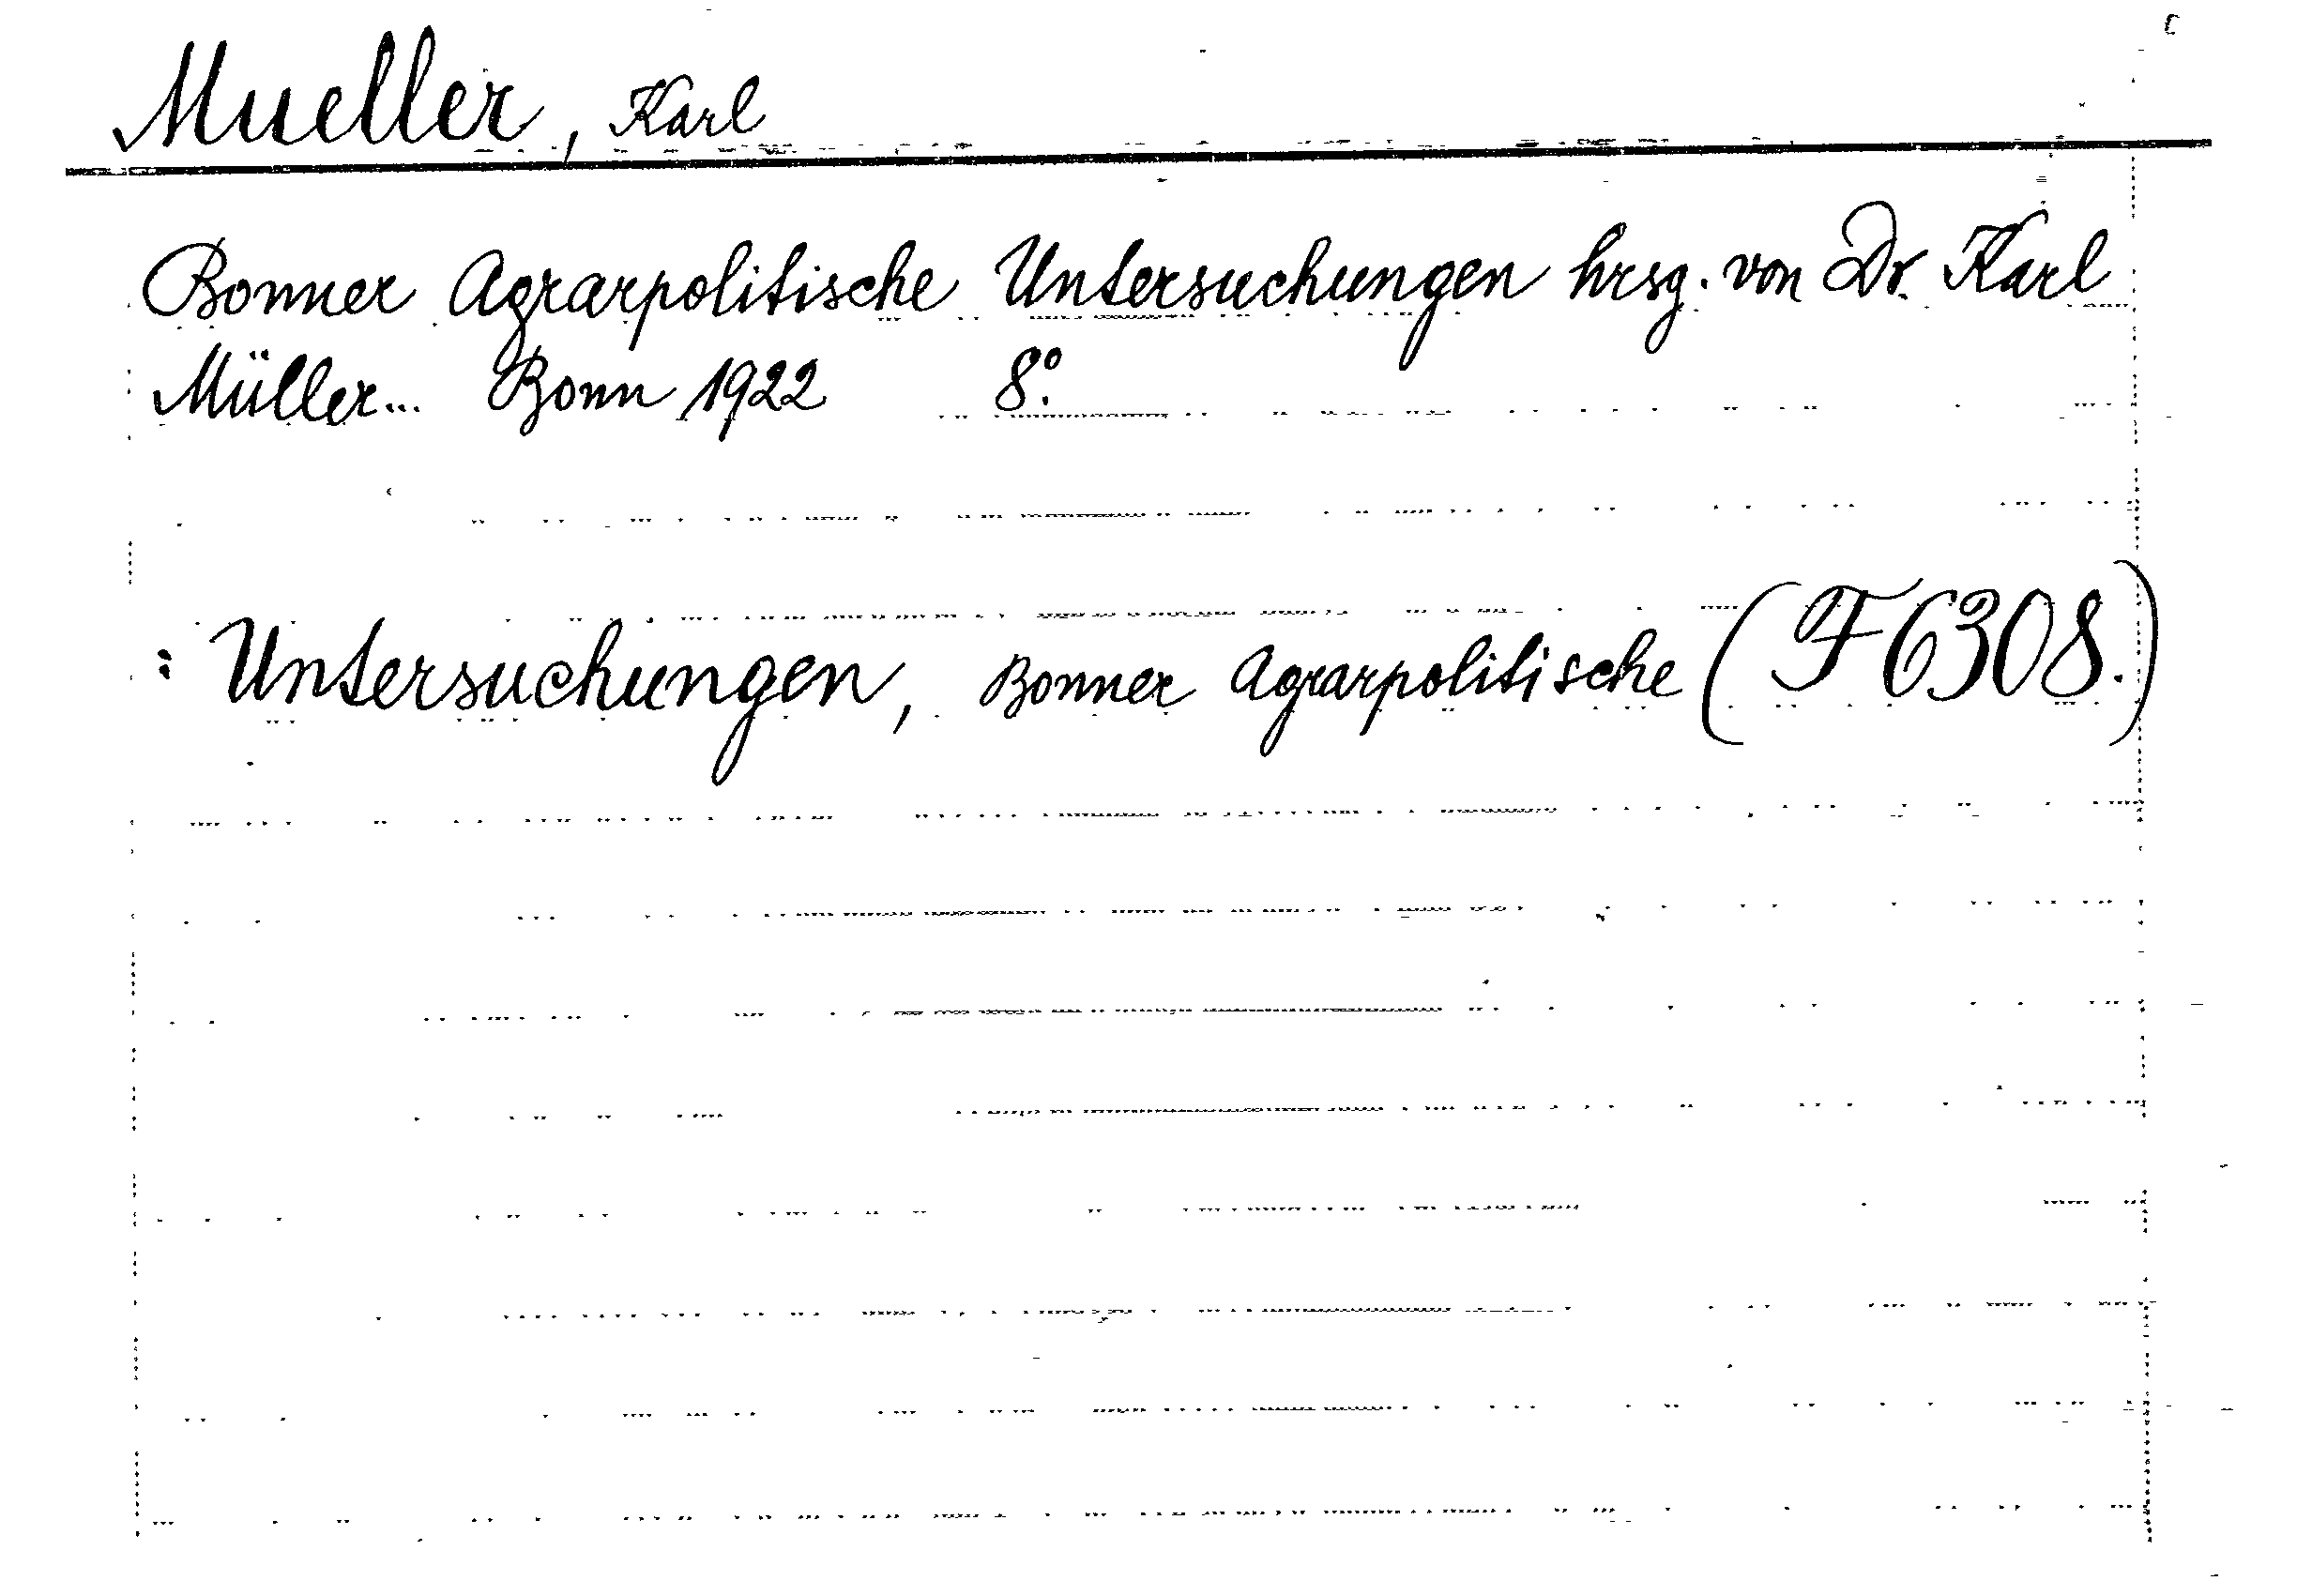 Mueller, Karl
Bonner Agrarpolitische Untersuchungen hrsg. von Dr. Karl
Müller... Bonn 1922 8°.
: Untersuchungen, Bonner Agrarpolitische (F6308.)